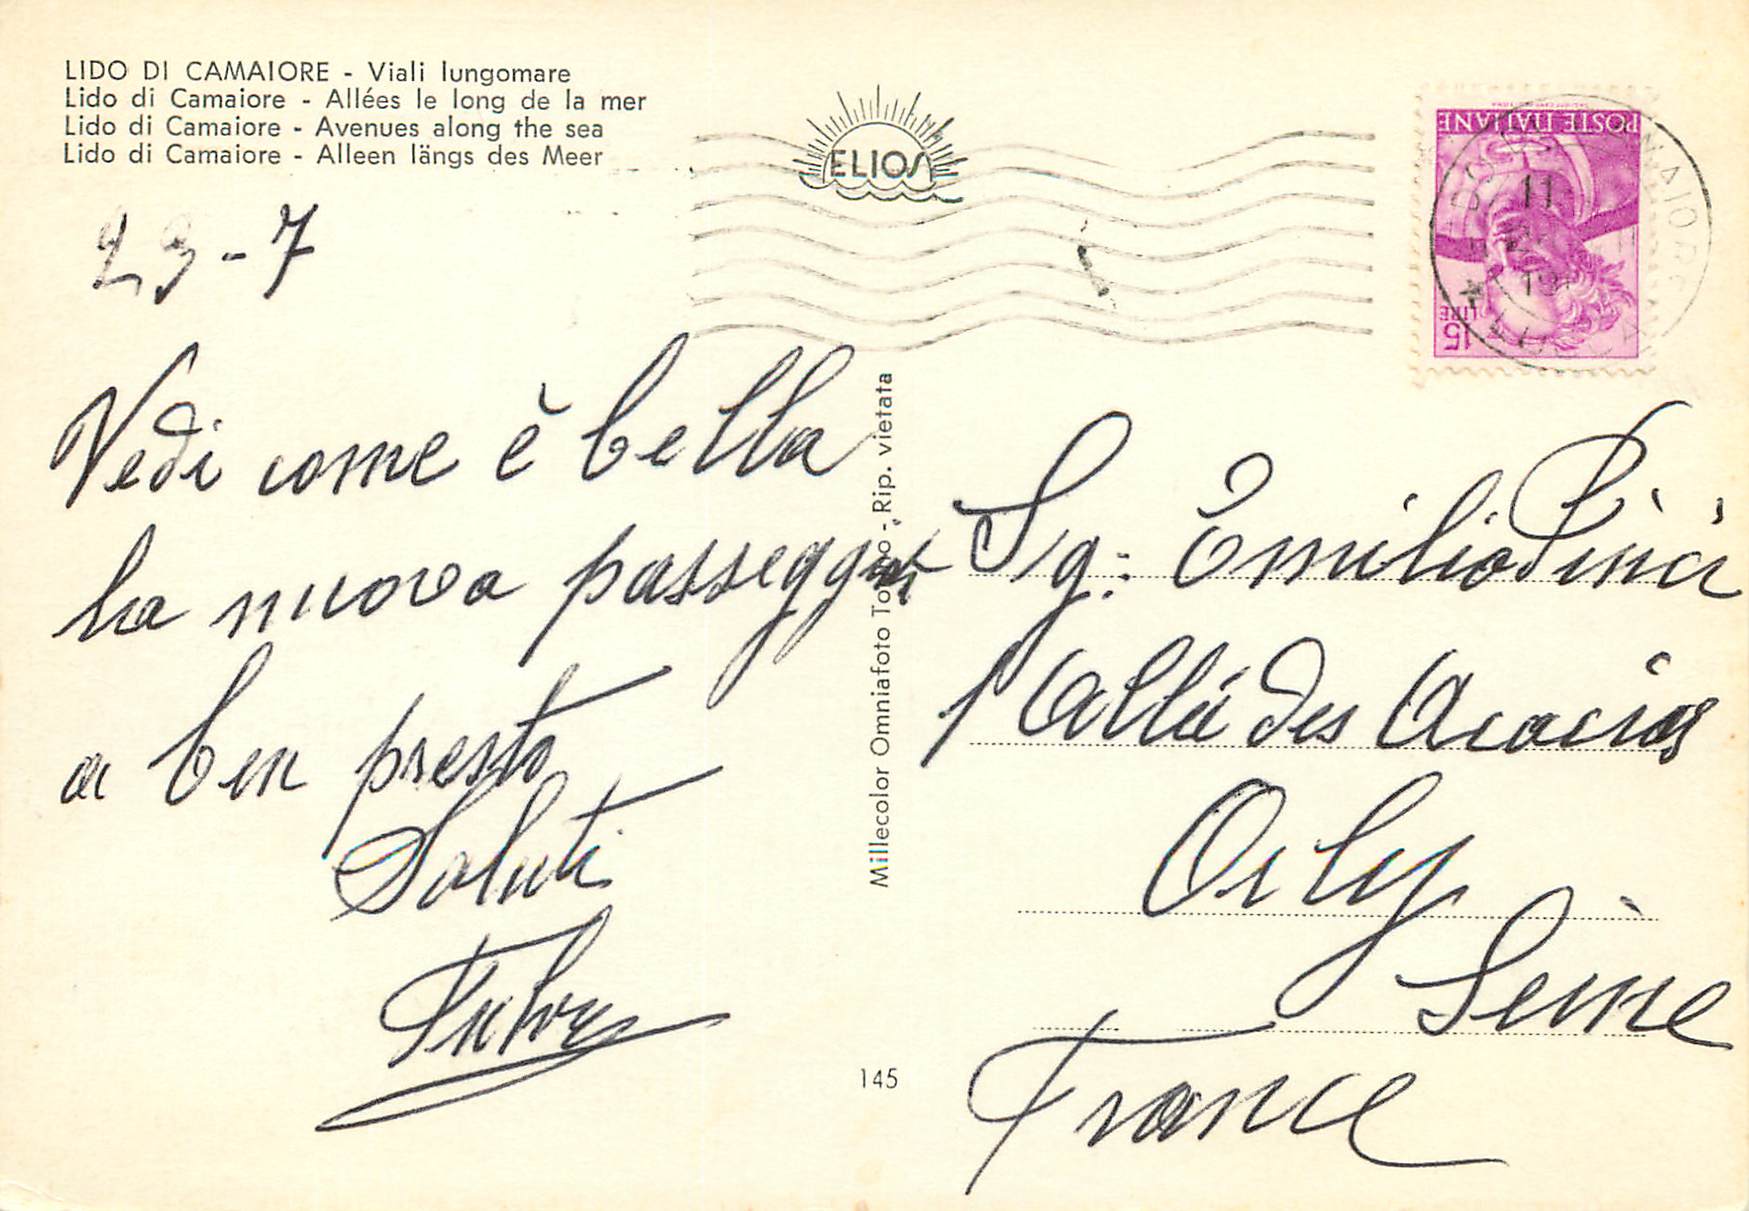 LIDO DI CAMAIORE - Viali lungomare
Lido di Camaiore - Allées le long de la mer
Lido di Camaiore - Avenues along the sea
Lido di Camaiore - Alleen längs des Meer
ELIOS
POSTE ITALIANE
15 LIRE
23-7
Vedi come è bella
la nuova
a ben presto
Saluti
Millecolor Omniafoto Torino - Rip. vietata
145
Sg: Emilio Pinci
1 Allée des Acacias
Orly
Seine
France